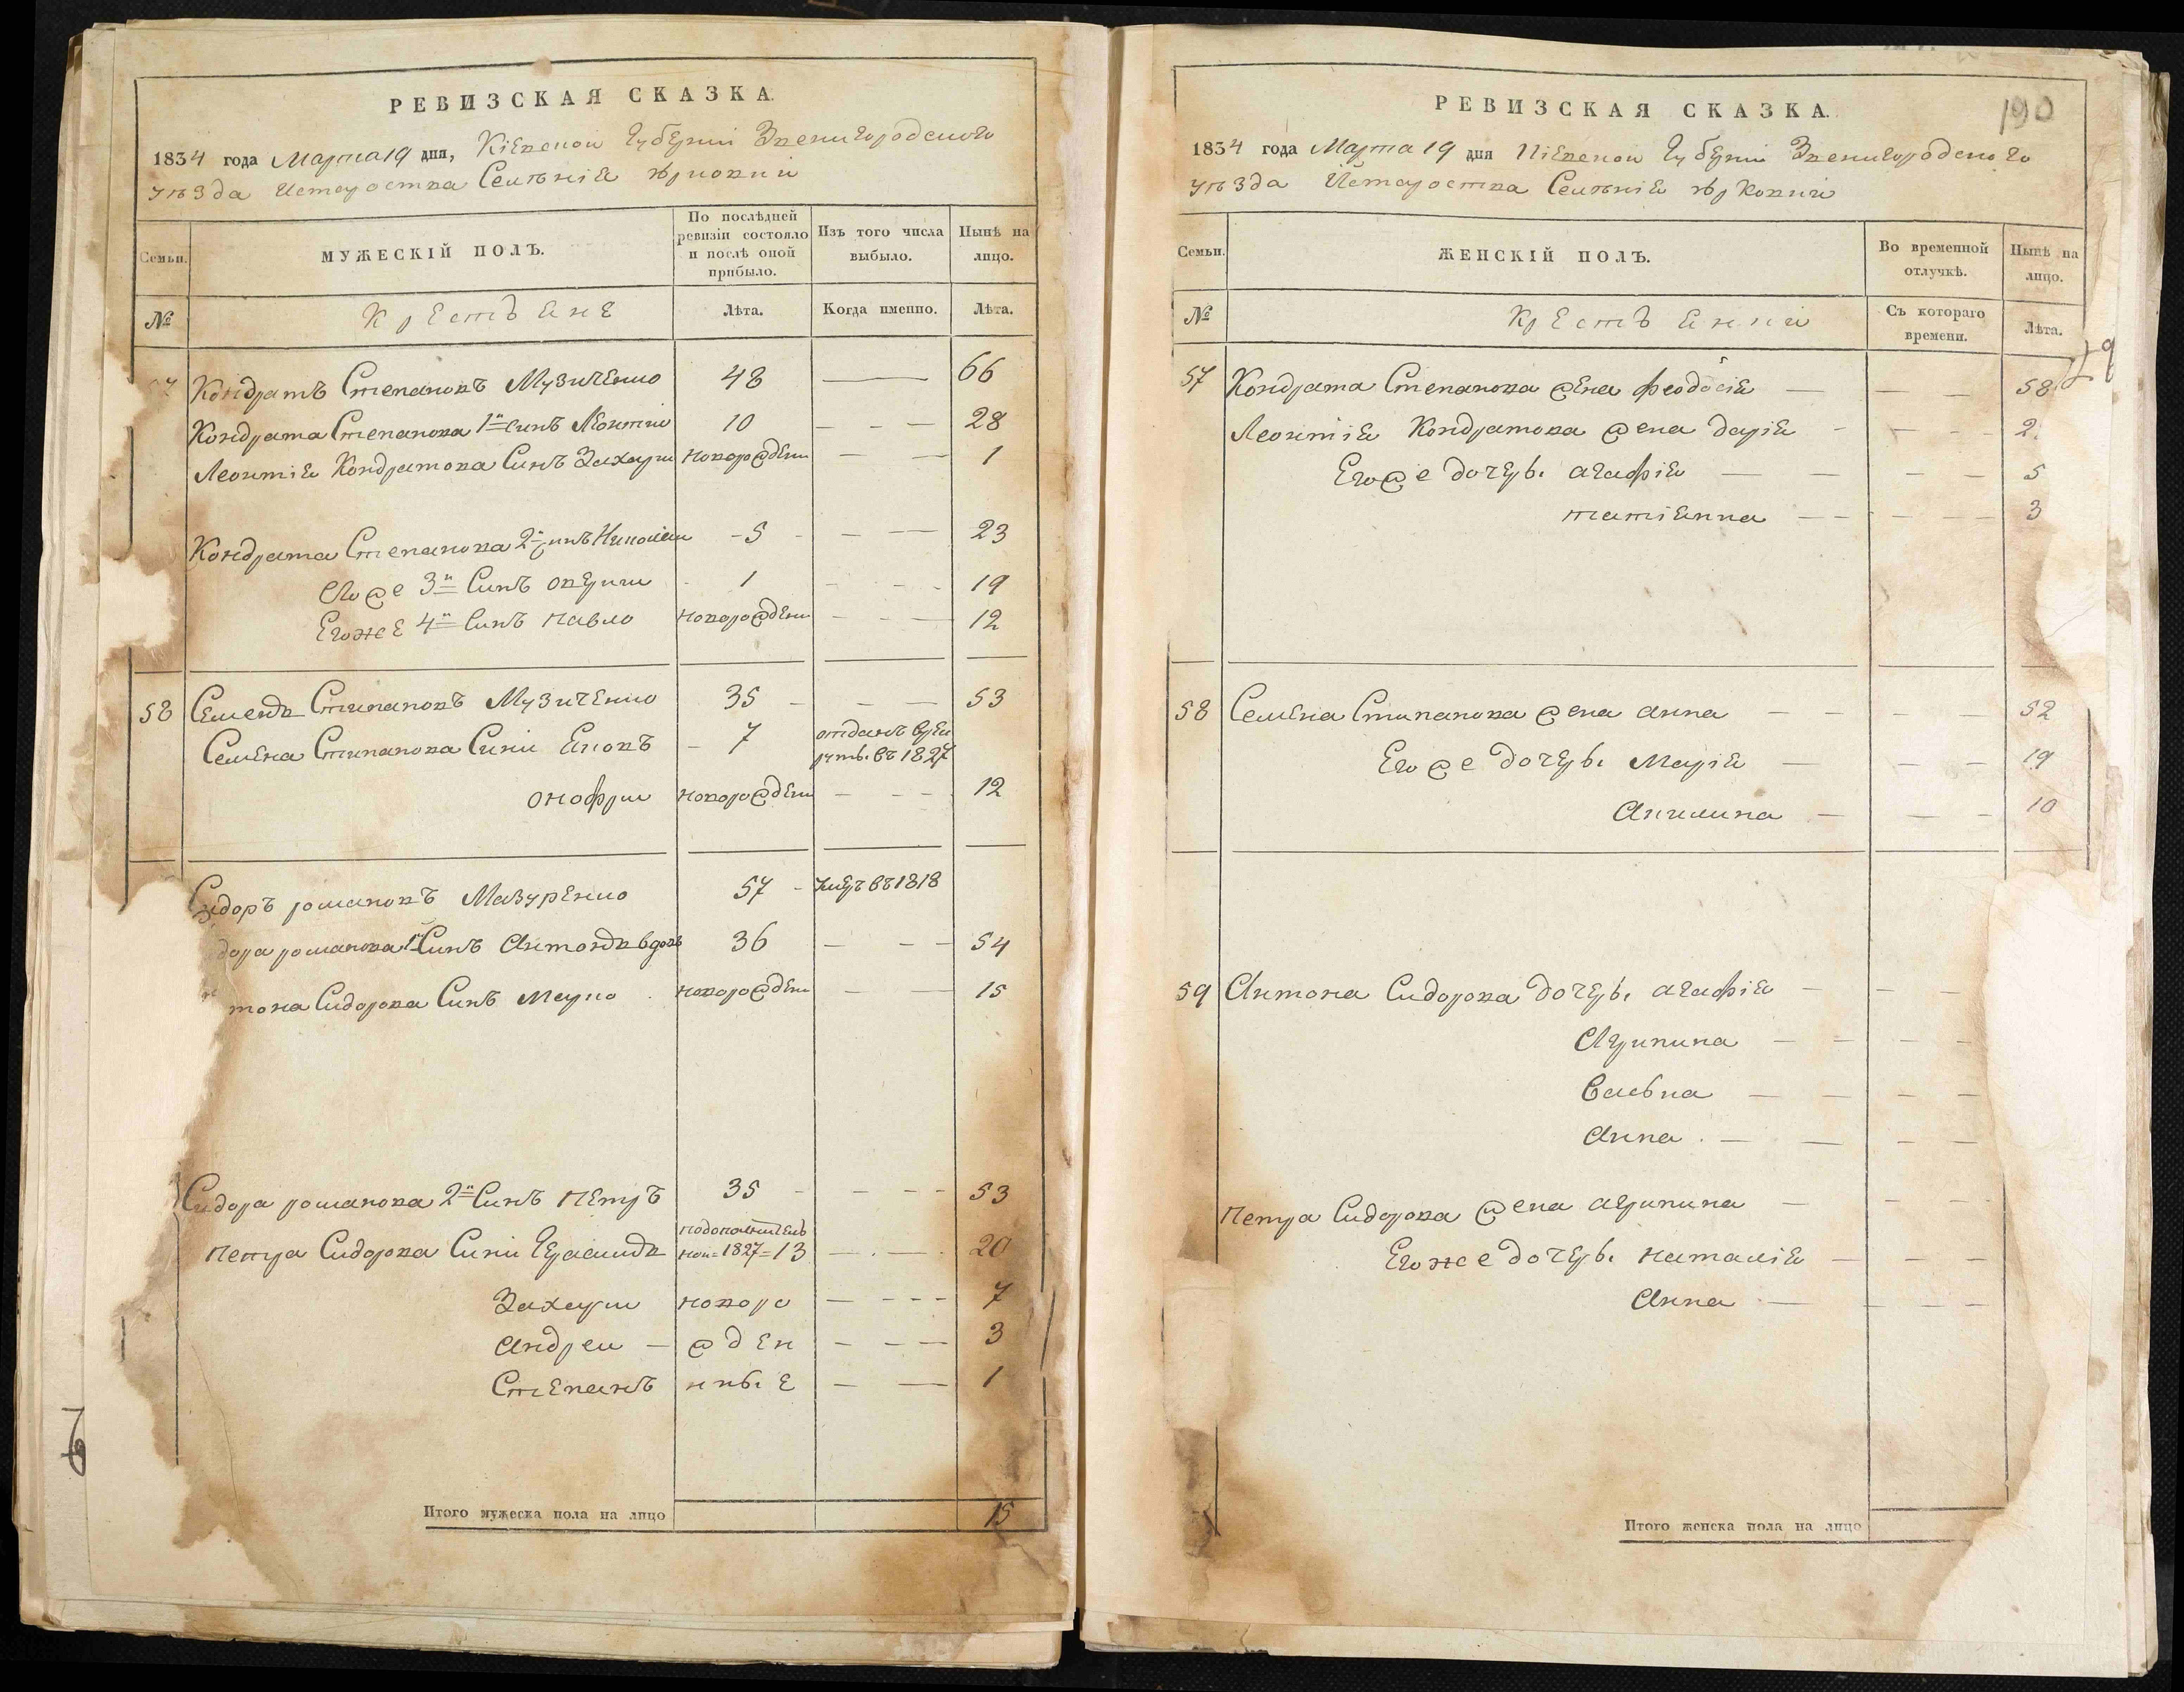 РЕВИЗСКАЯ СКАЗКА.
1834 года Марта 19 дня, Кіевской Губерніи Звенигородского
уѣзда Староства Селѣнія
Семьи.
МУЖЕСКІЙ ПОЛЪ.
По послѣдней ревизіи состояло и послѣ оной прибыло.
Изъ того числа выбыло.
Нынѣ на лицо.
№
Крестьяне
Лѣта.
Когда именно.
Лѣта.
57 Кондратъ Степановъ Музиченко 48 — 66
Кондрата Степанова 1й синъ Леонтий 10 — — — 28
Леонтія Кондратова Синъ Захарій новорожденн — — 1
Кондрата Степанова 2й синъ Николай 5 — — 23
Егоже 3й Синъ оверки 1 — — — 19
Егоже 4й Синъ Павло новорожденн — — — 12
58 Семенъ Стипановъ Музиченко 35 — — — 53
Семена Стипанова Сини Яковъ 7 отданъ врек
руты въ 1827
онофрий новорожденн — — — 12
Сидоръ романовъ Мазуренко 57 умеръ въ 1818
дора романова 1й Синъ Антонъ вдовъ 36 — — — 54
тона Сидорова Синъ Марко новорожденн — — 15
Сидора романова 2й Синъ Петръ 35 — — — 53
Петра Сидорова Сини Герасимъ 1827 = 13 — — 20
Захарий новоро — — — — 7
Андреи — жден — — — 3
Степанъ ныe — — 1
Итого мужеска пола на лицо 15
РЕВИЗСКАЯ СКАЗКА.
190
1834 года Марта 19 дня Кіевской Губерніи Звенигородского
уѣзда Староства Селѣнія
Семьи.
ЖЕНСКІЙ ПОЛЪ.
Во временной отлучкѣ.
Нынѣ на лицо.
№
Крестьянки
Съ котораго времени.
Лѣта.
57 Кондрата Степанова жена феодосія — — — 58
Леонтія Кондратова жена дарія — — — 2
Егоже дочеры агафія — — — 5
татіянна — — — 3
58 Семена Стипанова жена анна — — — — 52
Егоже дочеры Марія — — — 19
Акилина — — — 10
59 Антона Сидорова дочеры агафія — — —
Агрипина — — — —
Евсьна — — — —
Анна — — — —
Петра Сидорова жена агрипина — — —
Егоже дочеры наталія — — —
Анна — — — —
Итого женска пола на лицо